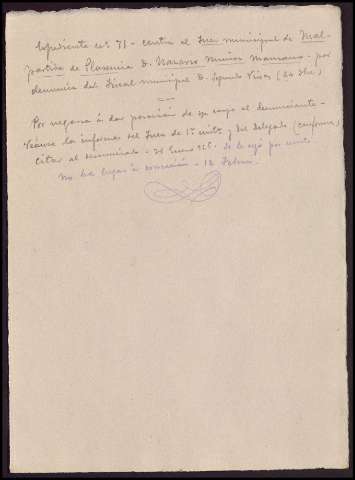 Expediente est 71 - contra el Juez municipal de Mal-
partida de Plasencia D. Nazario Muñoz Manzano - por
denuncia del Fiscal municipal D. Vivas
Por negarse á dar posesion de su cargo al denunciante -
informes del Juez de 1ª instª y del delegado (conforme)
Citar al denunciado - 28 Enero 926. Se le oyó por escrito
No ha lugar á sancion - 12 Febro.